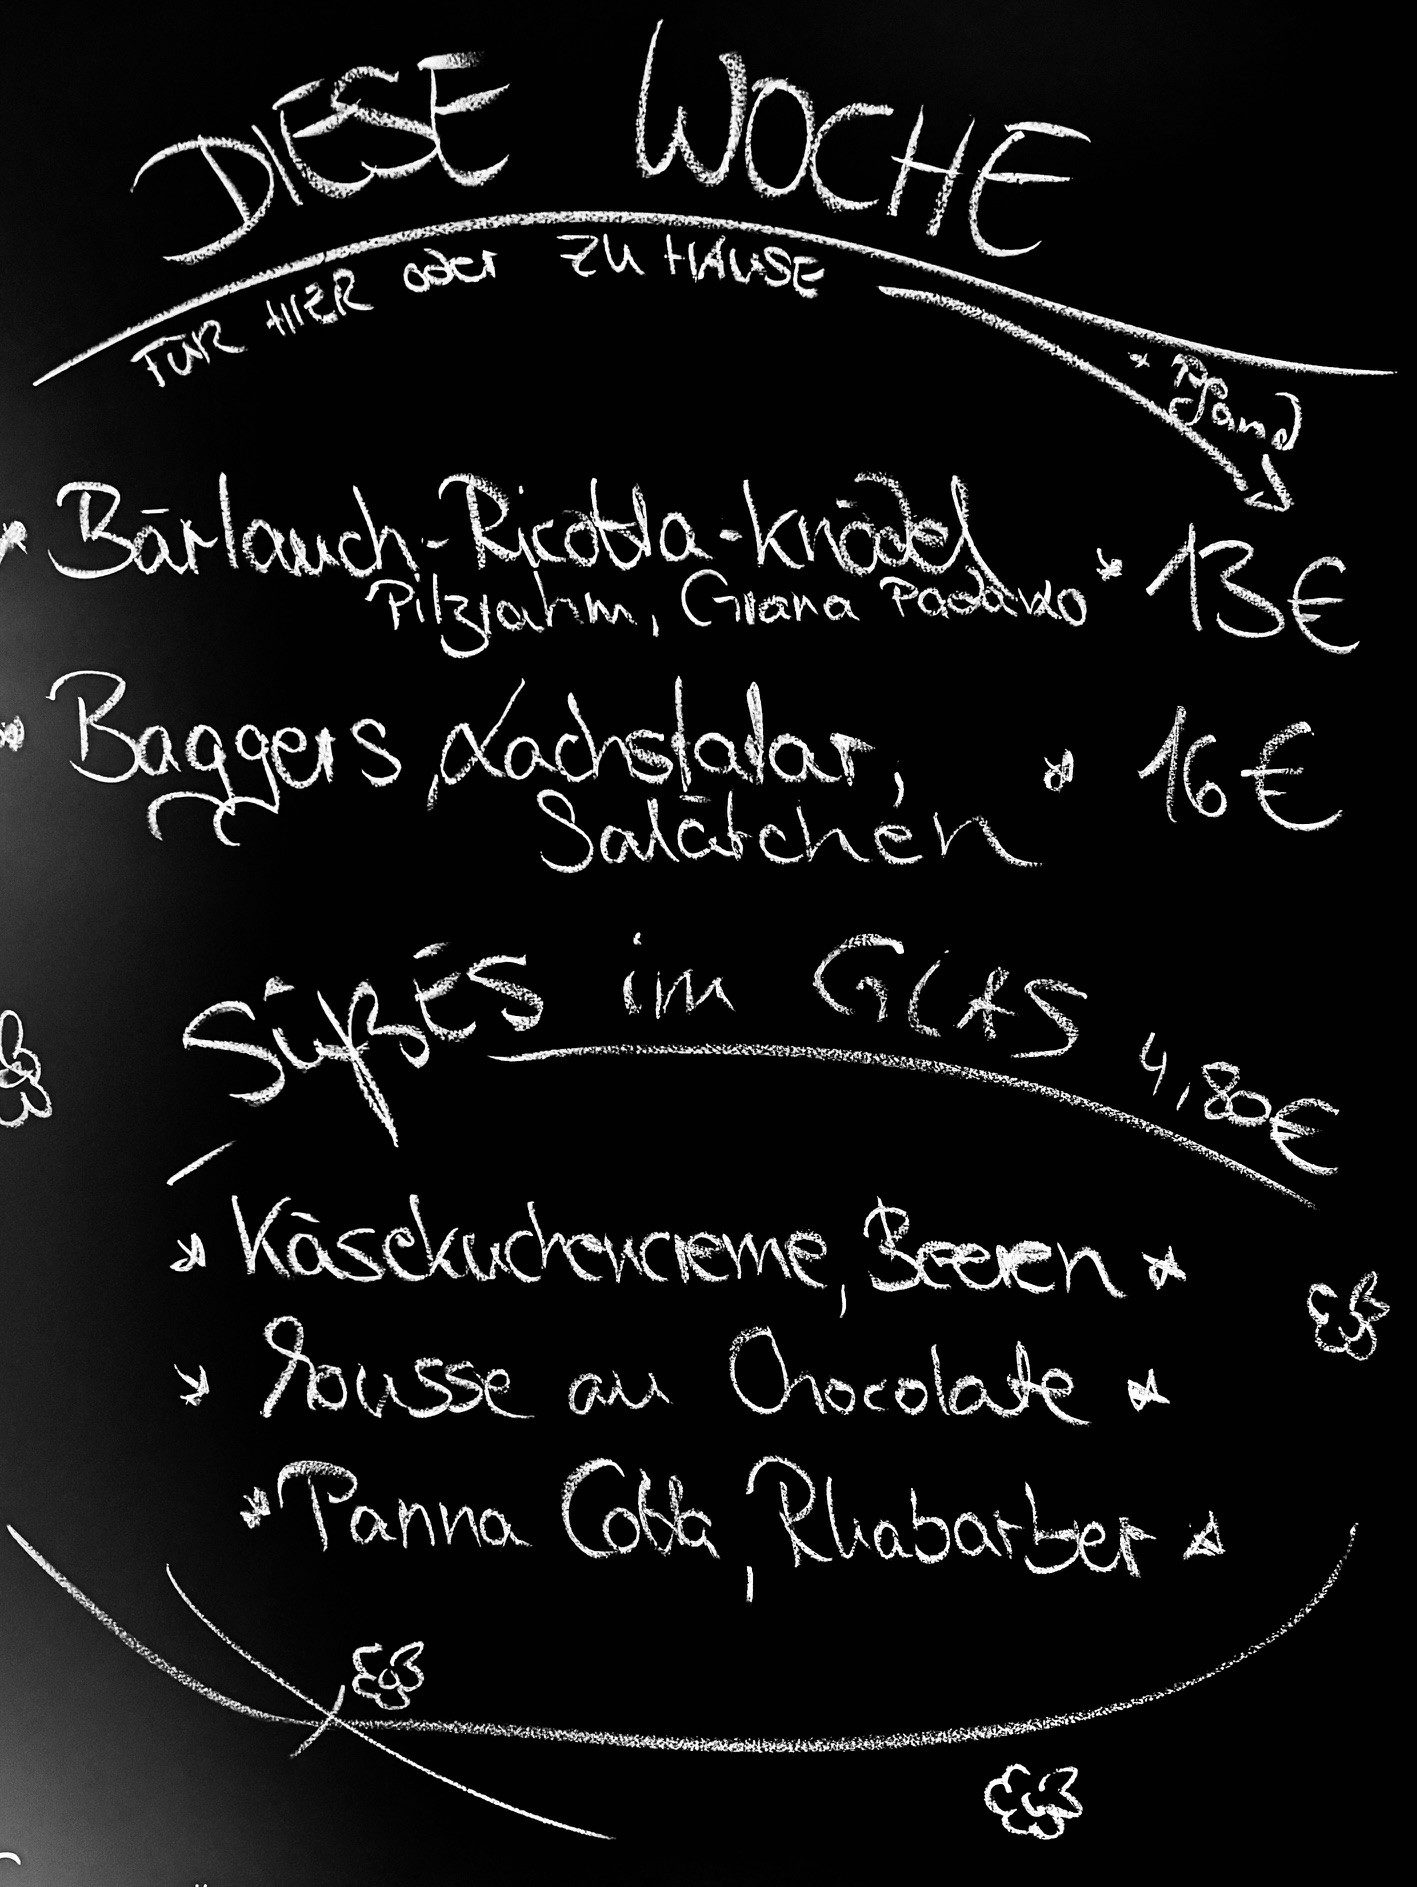 DIESE WOCHE
FÜR HIER oder ZU HAUSE
+ Pfand
Bärlauch-Ricotta-Knödel * 13€
Pilzrahm, Grana Padano
Baggers, Lachstatar, * 16€
Salätchen
SÜßES im GLAS
4,80€
Käsekuchencreme, Beeren
Mousse au Chocolate
Panna Cotta, Rhabarber